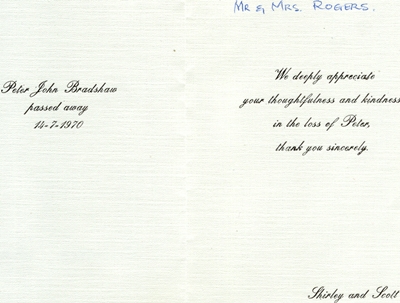 Peter John Bradshaw
passed away
14-7-1970
Mr & Mrs. Rogers.
We deeply appreciate
your thoughtfulness and kindness
in the loss of Peter,
thank you sincerely.
Shirley and Scott